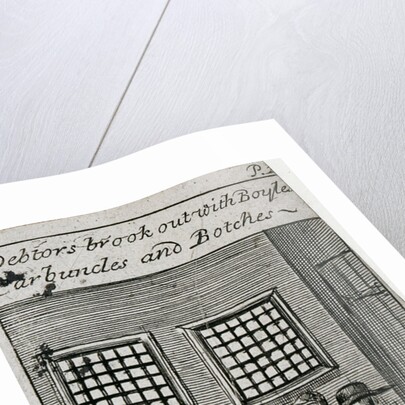 P.
Debtors brook out with Boyles
Carbuncles and Botches~